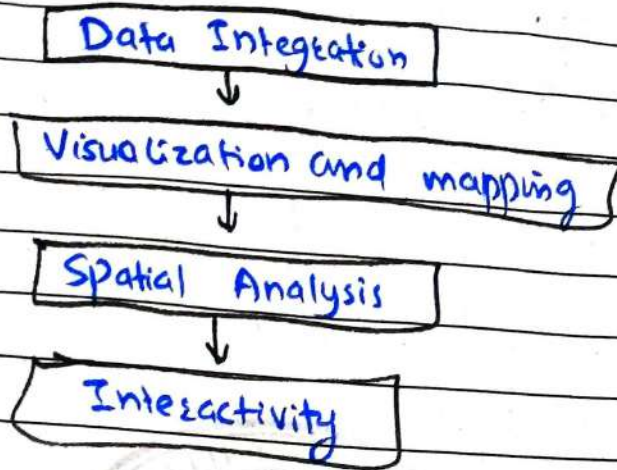 Data Integration
Visualization and mapping
Spatial Analysis
Interactivity